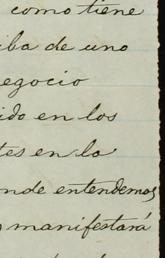 como tiene
iba de uno
egocio
ido en los
tes en la
nde entendemos
manifestará